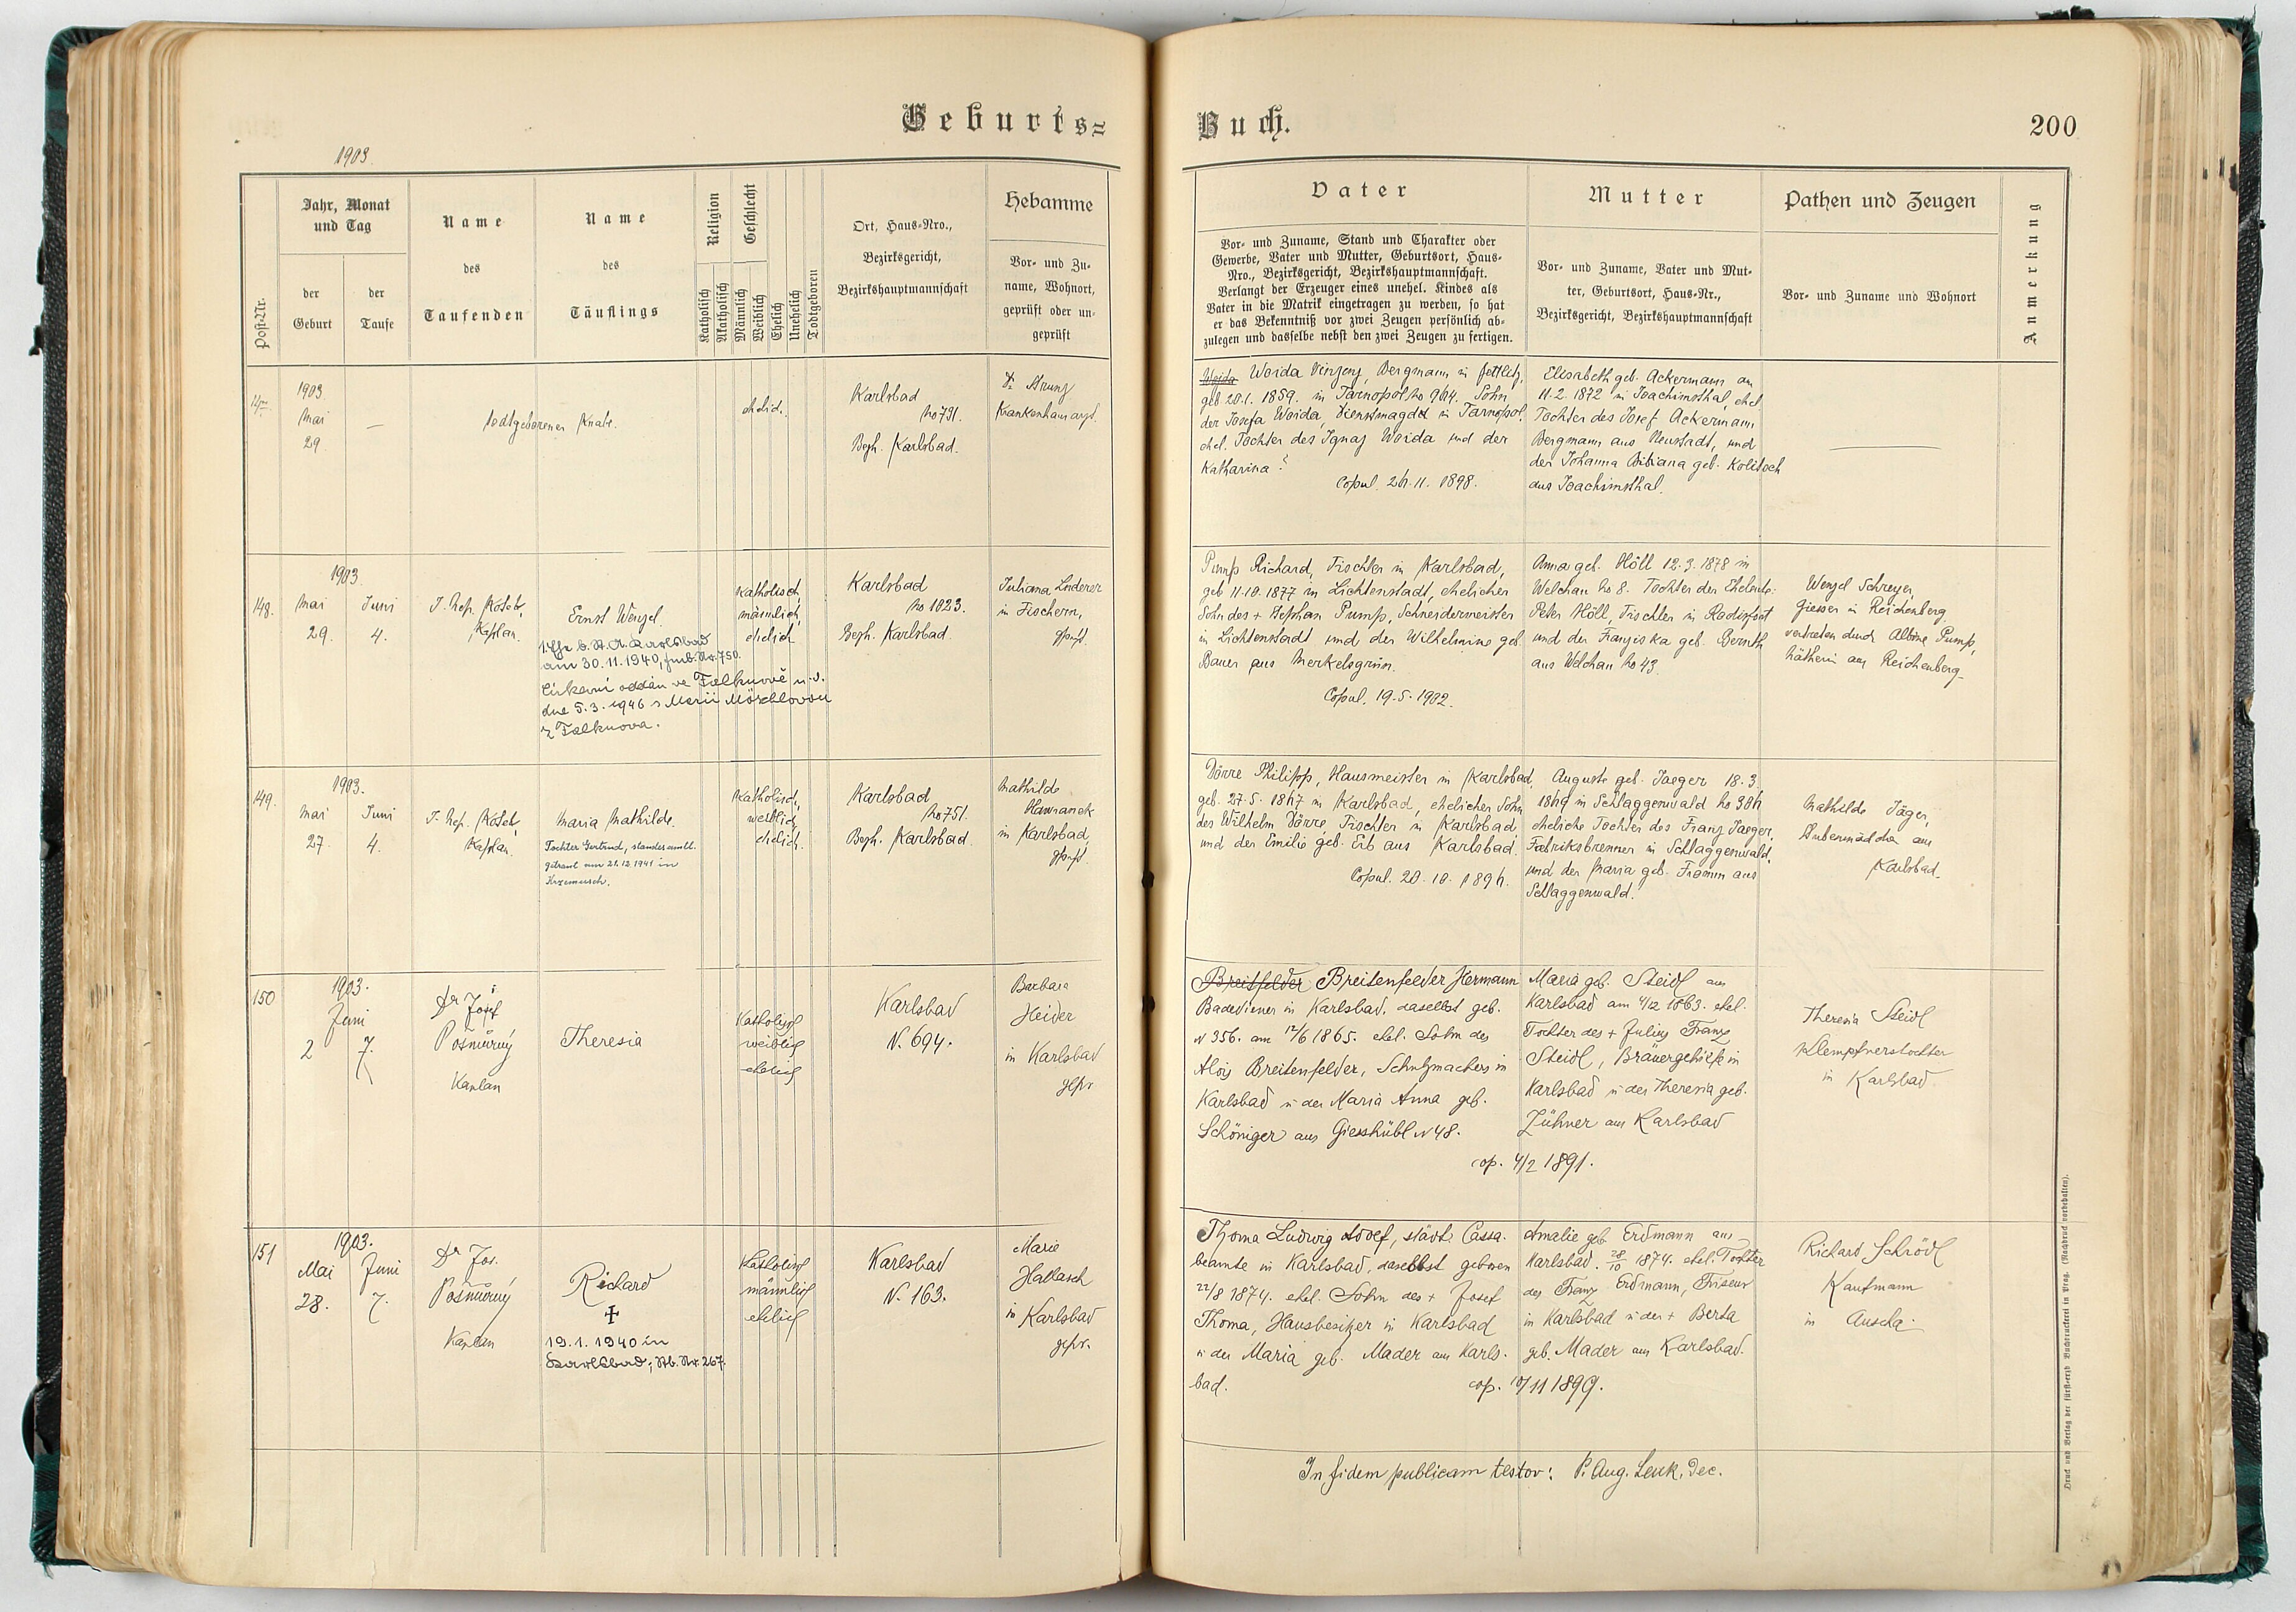 Geburts=
Buch.
200
1903.
Post-Nr.
Jahr, Monat
und Tag
der
Geburt
der
Taufe
Name
des
Taufenden
Name
des
Täuflings
Religion
Katholisch
Akatholisch
Geschlecht
Männlich
Weiblich
Ehelich
Unehelich
Todtgeboren
Ort, Haus=Nro.,
Bezirksgericht,
Bezirkshauptmannschaft
Hebamme
Vor= und Zu=
name, Wohnort,
geprüft oder un=
geprüft
Vater
Vor= und Zuname, Stand und Charakter oder
Gewerbe, Vater und Mutter, Geburtsort, Haus=
Nro., Bezirksgericht, Bezirkshauptmannschaft.
Verlangt der Erzeuger eines unehel. Kindes als
Vater in die Matrik eingetragen zu werden, so hat
er das Bekenntniß vor zwei Zeugen persönlich ab=
zulegen und dasselbe nebst den zwei Zeugen zu fertigen.
Mutter
Vor= und Zuname, Vater und Mut=
ter, Geburtsort, Haus=Nr.,
Bezirksgericht, Bezirkshauptmannschaft
Pathen und Zeugen
Vor= und Zuname und Wohnort
Anmerkung
1903.
Mai
29
—
todtgeborener Knabe.
ehelich.
Karlsbad
No 791.
Bezh. Karlsbad.
Dr. Strunz
Krankenhausarzt.
Woida Woida Vinzenz, Bergmann in
geb 20.1. 1859. in Tarnopol No 964. Sohn
der Josefa Woida, Dienstmagd in Tarnopol,
ehel. Tochter des Ignaz Woida und der
Katharina ?
Copul. 26. 11. 1898.
Elisabeth geb. Ackermann am
11.2. 1872 in Joachimsthal, ehel
Tochter des Josef Ackermann
Bergmann aus Neustadt, und
der Johanna Bibiana geb. Kolitsch
aus Joachimsthal.
148.
1903.
Mai
29.
Juni
4.
J. Nep. Koteb,
Kaplan.
Ernst Wenzel.
1. Ehe b. St. A. Karlsbad
am 30. 11. 1940, Nr. 750.
Církevní oddán ve Falknově n. O.
dne 5. 3. 1946 s Marií Möschlovou
z Falknova.
katholisch,
männlich,
ehelich
Karlsbad
No 1023.
Bezh. Karlsbad.
Juliana Loderer
in Fischern,
gepft.
Pump Richard, Tischler in Karlsbad,
geb 11.10. 1877 in Lichtenstadt, ehelicher
Sohn des + Stephan Pump, Schneidermeister
in Lichtenstadt und der Wilhelmine geb
Bauer aus Merkelsgrün.
Copul. 19. 5. 1902.
Anna geb. Höll 12. 3. 1878 in
Welchau No 8. Tochter der Eheleute:
Peter Höll, Tischler in Rodisfort
und der Franziska geb. Bernth
aus Welchau No 43.
Wenzel Schreyer,
Giesser in Reichenberg
vertreten durch Albine Pump,
Nätherin aus Reichenberg
149.
1903.
Mai
27.
Juni
4.
J. Nep. Koteb,
Kaplan.
Maria Mathilde.
Tochter Gertrud, standesamtl.
getraut am 21. 12. 1941 in
Krzemusch.
katholisch,
weiblich,
ehelich.
Karlsbad
No 751.
Bezh. Karlsbad.
Mathilde
Hawranek
in Karlsbad,
gepft.
Dörre Philipp, Hausmeister in Karlsbad,
geb. 27. 5. 1867 in Karlsbad, ehelicher Sohn
des Wilhelm Dörre, Tischler in Karlsbad,
und der Emilie geb. Erb aus Karlsbad.
Copul. 20. 10. 1896.
Auguste geb. Jaeger 18. 3.
1869 in Schlaggenwald No 306
eheliche Tochter des Franz Jaeger,
Fabriksbrenner in Schlaggenwald,
und der Maria geb. Fromm aus
Schlaggenwald.
Mathilde Jäger,
Stubenmädchen aus
Karlsbad.
150
1903.
Juni
2
7.
Dr Josef
Pošmůrný
Kaplan
Theresia
Katholisch
weiblich
ehelich
Karlsbad
N. 694.
Barbara
Heider
in Karlsbad
gepr
Breitfelder Breitenfelder Hermann
Badediener in Karlsbad, daselbst geb.
N 356. am 12/6 1865. ehel. Sohn des
Alois Breitenfelder, Schuhmachers in
Karlsbad u der Maria Anna geb.
Schöniger aus Giesshübl N 48.
cop. 4/2 1891.
Maria geb. Steidl aus
Karlsbad am 4/12 1863. ehel.
Tochter des + Julius Franz
Steidl, Bräuergehilfe in
Karlsbad u der Theresia geb.
Zühner aus Karlsbad
Theresia Steidl
Klempfnerstochter
in Karlsbad
151
1903.
Mai
28.
Juni
7.
Dr Jos.
Pošmůrný
Kaplan
Richard
+
19. 1. 1940 in
Karlsbad; Stb. Nr. 267.
Katholisch
männlich
ehelich
Karlsbad
N. 163.
Marie
Hatlasch
in Karlsbad
gepr.
Thoma Ludwig Adolf, städt. Cassa.
beamte in Karlsbad, daselbst geboren
22/8 1874. ehel. Sohn des + Josef
Thoma, Hausbesitzer in Karlsbad
u der Maria geb. Mader aus Karls.
bad.
cop. 10/11 1899.
Amalie geb Erdmann aus
Karlsbad 28/10 1874. ehel. Tochter
des Franz Erdmann, Friseur
in Karlsbad u der + Berta
geb. Mader aus Karlsbad.
Richard Schrödl
Kaufmann
in Auscha.
In fidem publicam testor: P. Aug. Lenk, Dec.
Druck und Verlag der fürst=erzb. Buchdruckerei in Prag. (Nachdruck vorbehalten).